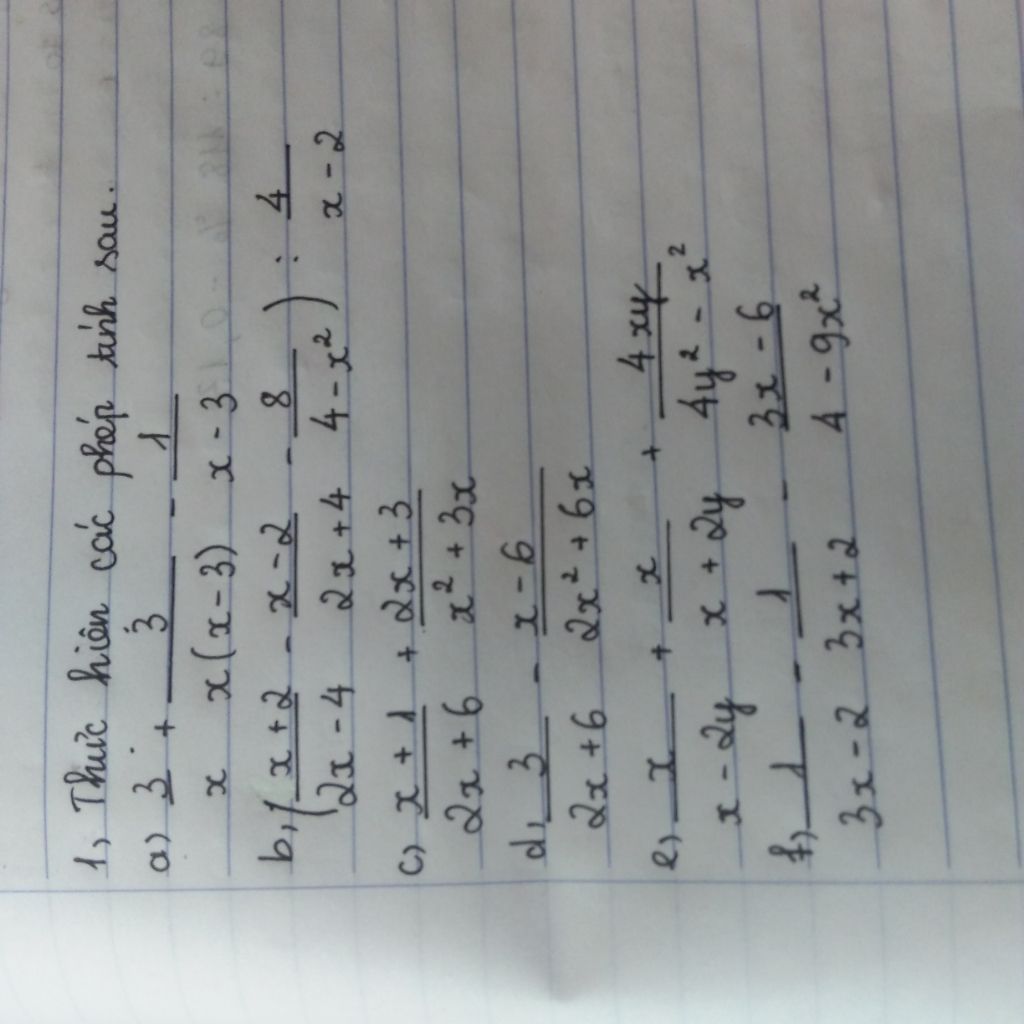 1, Thức hiên các pháp tính sau.
a) 3/x + 3/x(x-3) - 1/x-3
b, (x+2/2x-4 - x-2/2x+4 - 8/4-x²) : 4/x-2
c) x+1/2x+6 + 2x+3/x²+3x
d, 3/2x+6 - x-6/2x²+6x
e, x/x-2y + x/x+2y + 4xy/4y²-x²
f, 1/3x-2 - 1/3x+2 - 3x-6/4-9x²